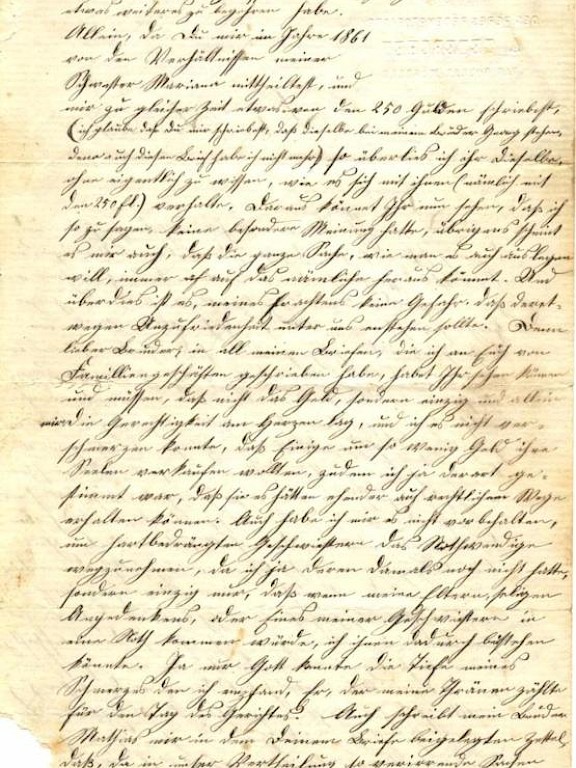 etwas weiteres zu begehren habe.
Allein, da Du mir im Jahre 1861
von den Verhältnissen meiner
Schwester Mariana mittheiltest, und
mir zu gleicher Zeit etwas von den 250 Gulden schriebest,
(ich glaube daß Du mir schriebest, daß dieselbe bei meinem Bruder Georg stehen,
denn auch diesen Brief habe ich nicht mehr) so überlies ich ihr dieselbe,
ohne eigentlich zu wissen, wie es sich mit ihnen (nämlich mit
den 250 fl.) verhalte. Daraus könnet Ihr nun sehen, daß ich
so zu sagen, keine besondere Meinung hatte, übrigens scheint
es mir auch, daß die ganze Sache, wie man es auch auslegen
will, immer auf das nämliche heraus kömmt. Und
überdies ist es, meines Erachtens keine Gefahr, daß derent-
wegen Unzufriedenheit unter uns enstehen sollte. Denn
lieber Bruder, in all meinen Briefen, die ich an Euch von
Familliengeschäften geschrieben habe, habet Ihr sehen können
und müssen, daß nicht das Geld, sondern einzig und allein
mir die Gerechtigkeit am Herzen lag, und ich es nicht ver-
schmerzen konnte, daß Einige um so wenig Geld ihre
Seelen verkaufen wollten, zudem ich ja derart ge-
stimmt war, daß sie es hätten ehender auf rechtlichem Wege
erhalten können. Auch habe ich mir es nicht vorbehalten,
um hartbedrängten Geschwistern das Nothwendige
wegzunehmen, da ich ja deren damals noch nicht hatte,
sondern einzig nur, daß wenn meine Eltern, seligen
Angedenkens, oder Eines meiner Geschwistern in
eine Noth kommen würde, ich ihnen dadurch beistehen
könnte. Ja nur Gott kannte die Tiefe meines
Schmerzes den ich empfand, Er, der meine Thränen zählte
für den Tag des Gerichtes. Auch schreibt mein Bruder
Mathias mir in dem Deinem Briefe beigelegten Zettel,
daß, da in unser Vertheilung so verirrende Sachen